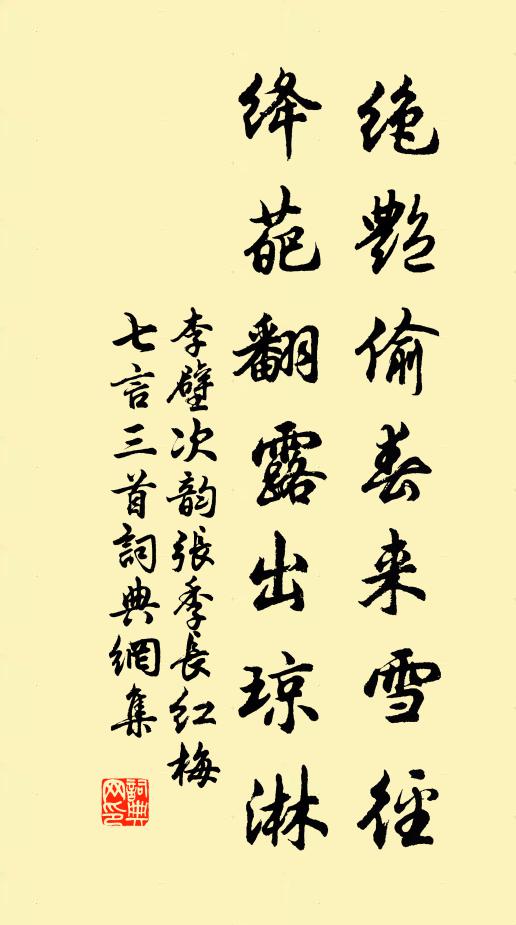 绝艳偷春来雪径
绛葩翻露出琼淋
李壁次韵张季长红梅
七言三首詞典網集
詞典